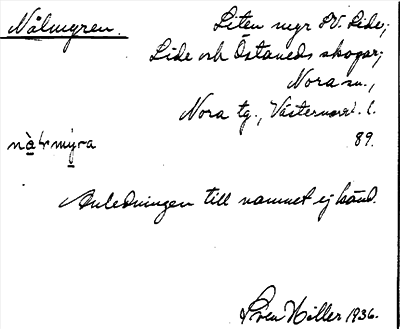 Nålmyren. Liten myr SV. Lide;
Lide och Östaneds skogar;
Nora sn.,
Nora tg., Västernorrl. l.
89.
nà̱ɫmy̱ra
Anledningen till namnet ej känd.
Sven Hiller 1936.